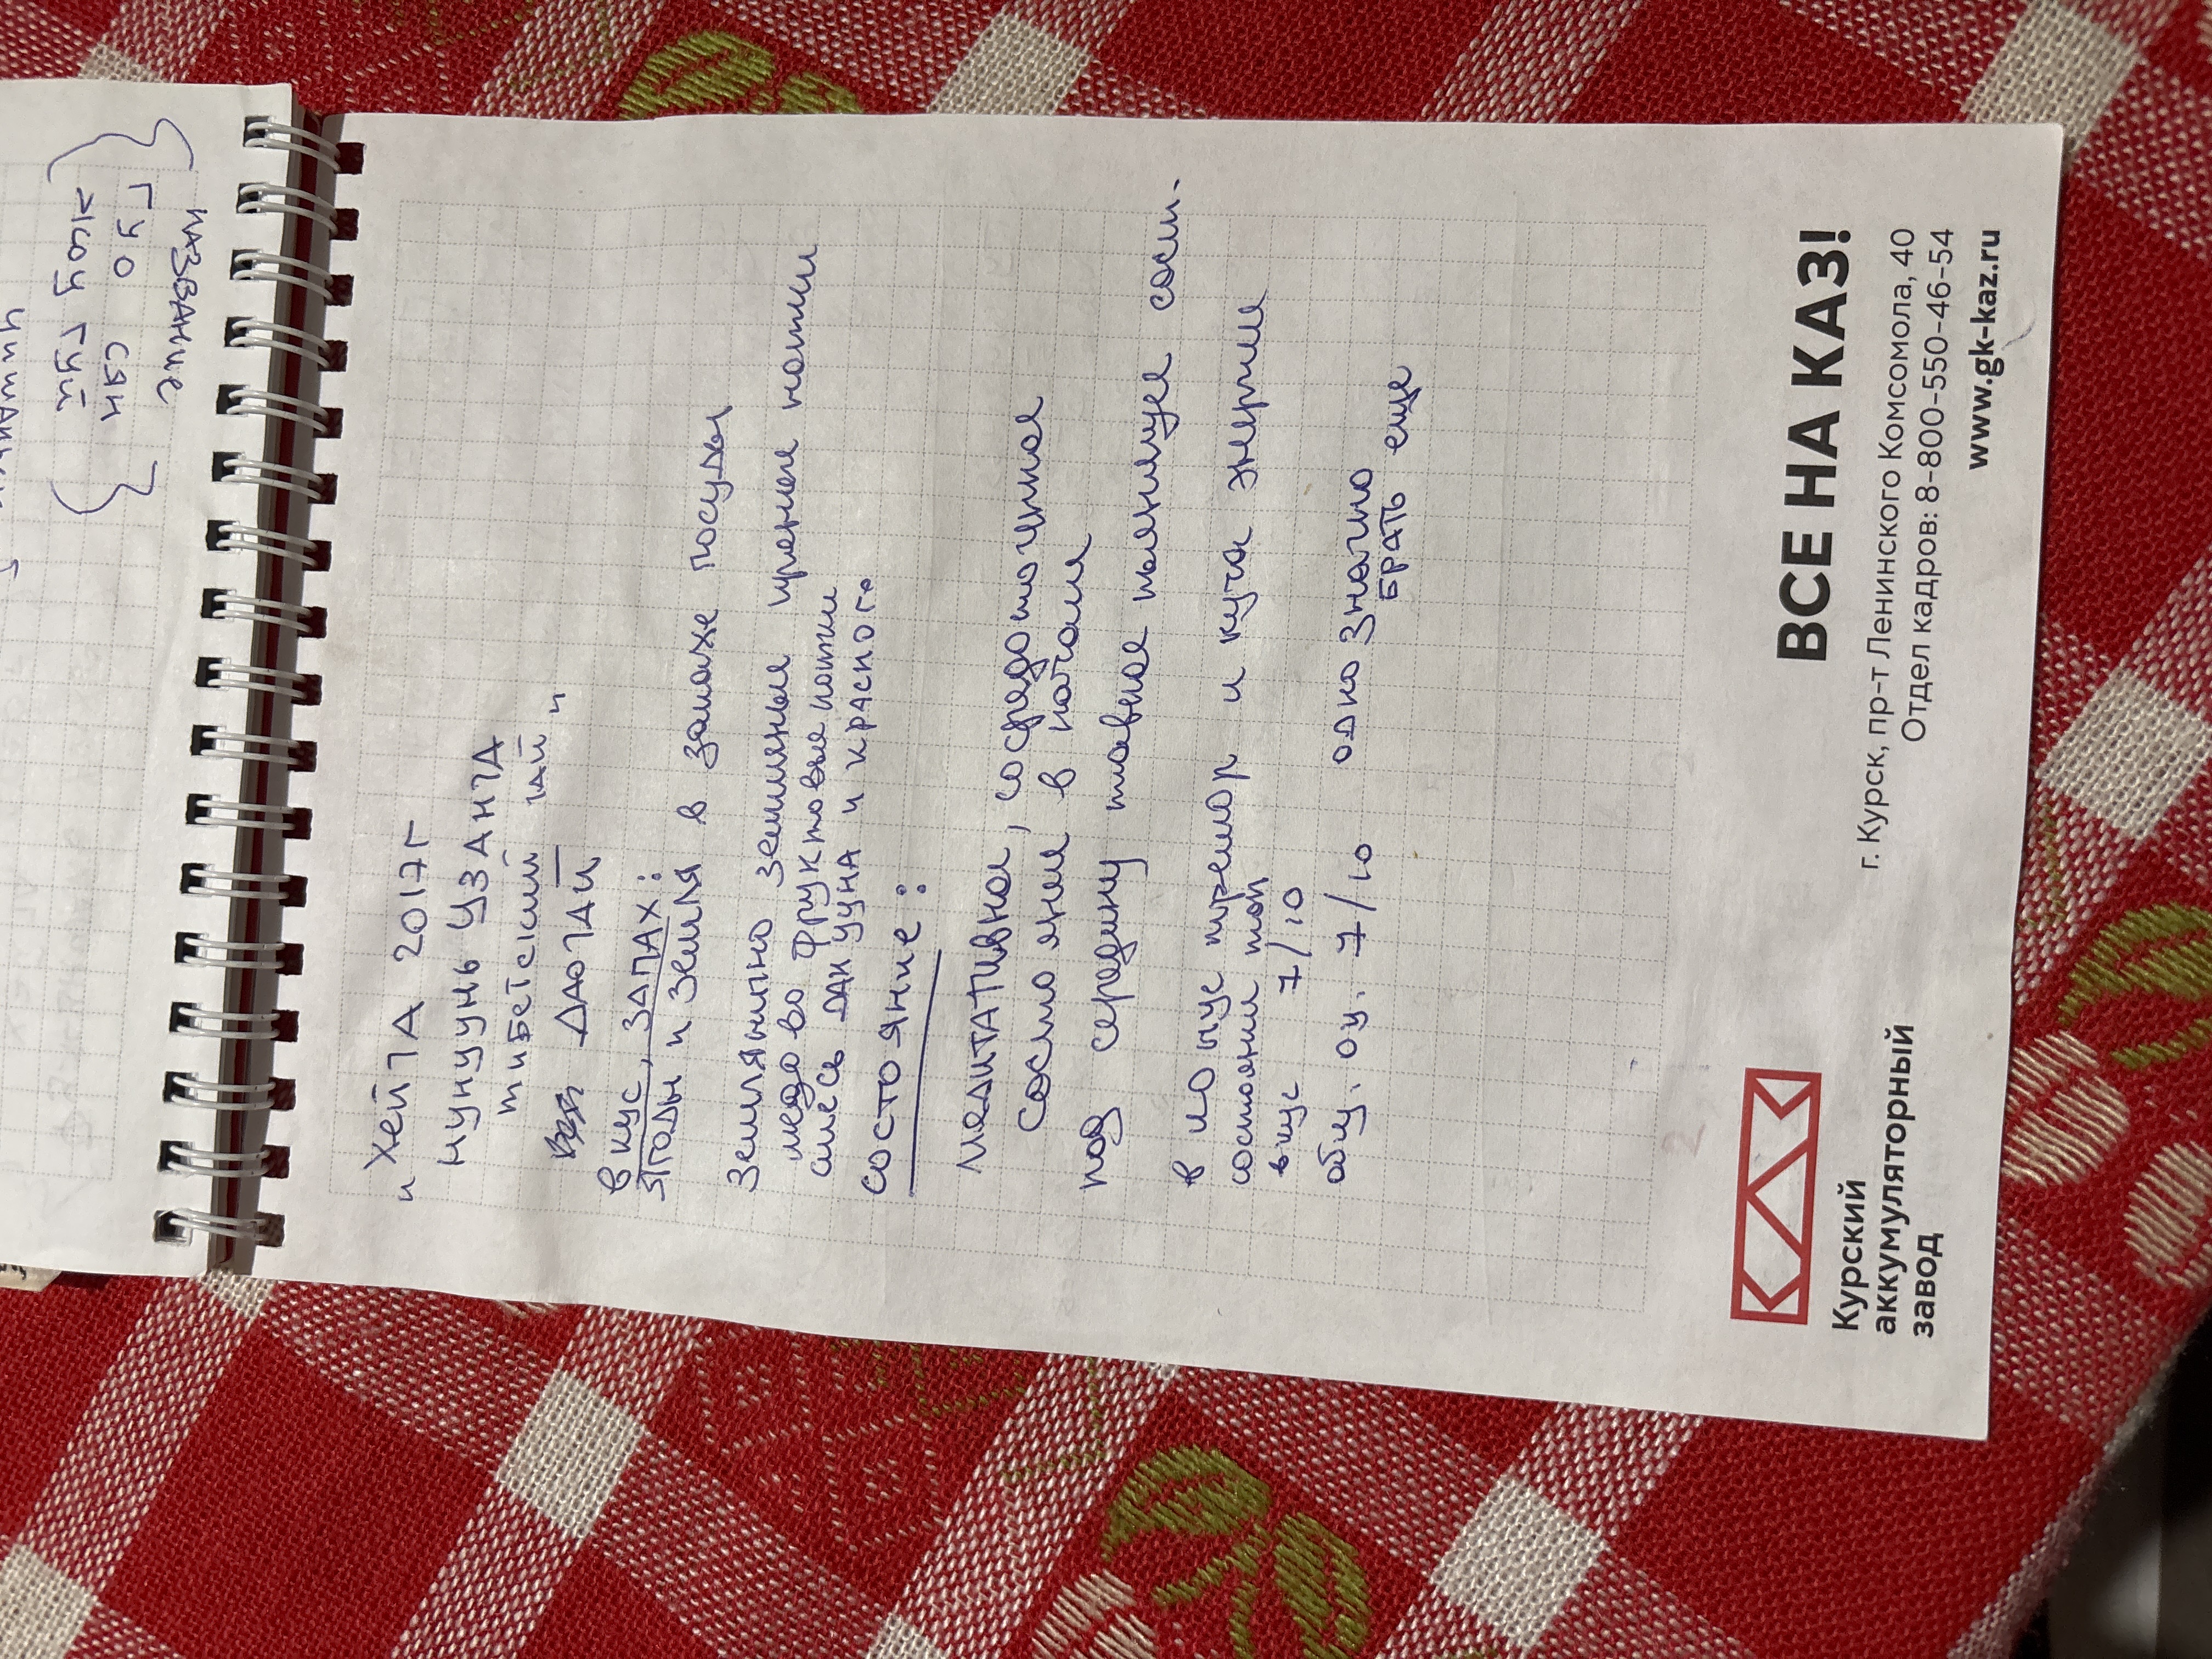 название
Гуо сян
жоу гуй
" Хей ЧА 2017г
нунцунь ЦЗАНЧА
тибетский чай "
ДАЮЧАЙ
вкус, ЗАПАХ:
ягоды и земля в запахе посуды
Землянично земляные пряные нотки
медово фруктовые нотки
смесь дак ууна и красного
состояние:
медитативное, сосредоточенное
состояние в начале
под середину плавное
в конце тремор и куча энергии
состоянии топ
вкус 7/10
общ. оц. 7/10 однозначно
БРАТЬ еще
Курский
аккумуляторный
завод
ВСЕ НА КАЗ!
г. Курск, пр-т Ленинского Комсомола, 40
Отдел кадров: 8-800-550-46-54
www.gk-kaz.ru